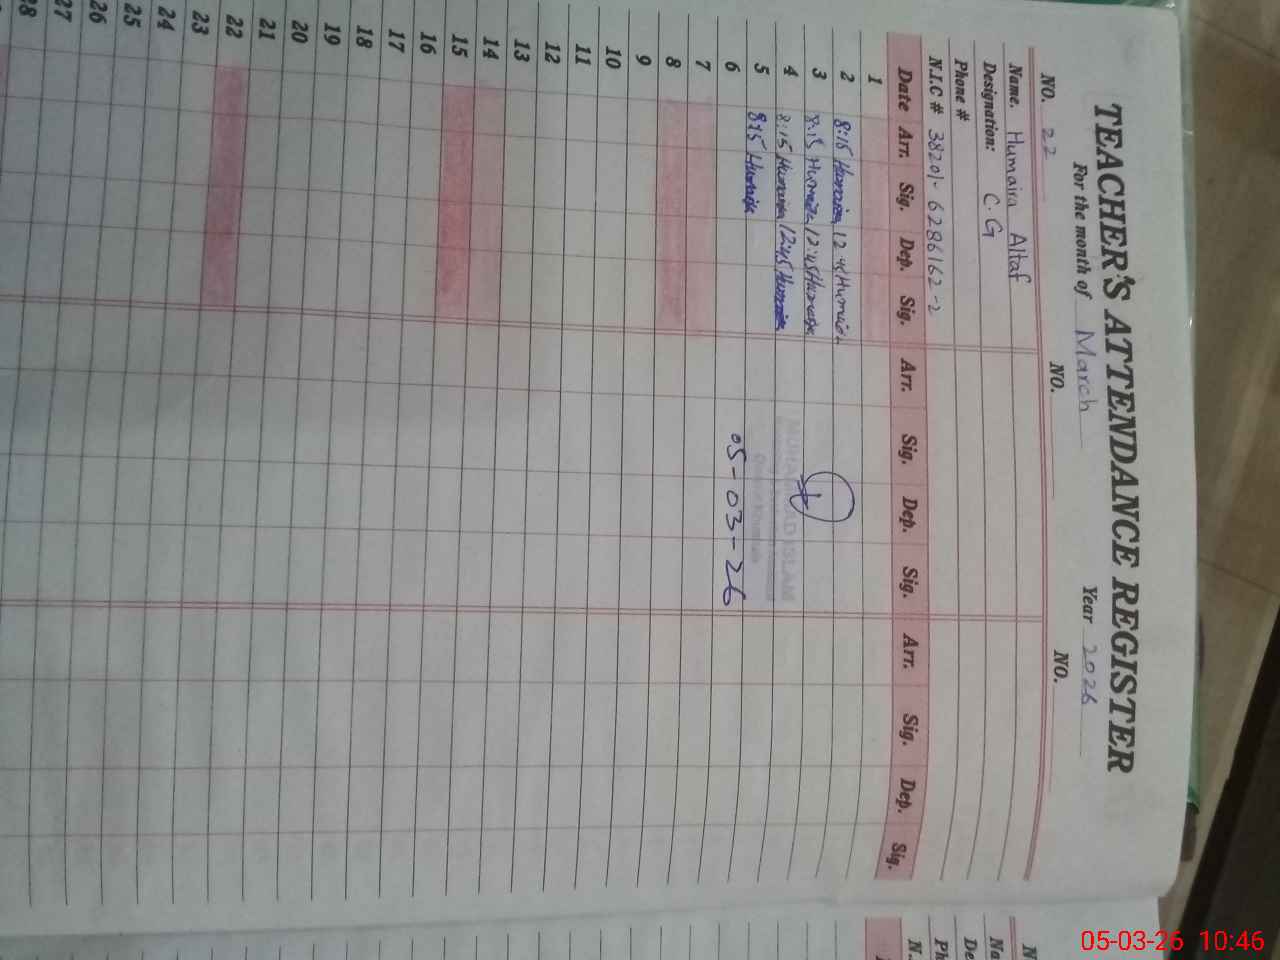 TEACHER'S ATTENDANCE REGISTER
For the month of March Year 2026
NO. 22 NO. NO.
Name. Humaira Altaf
Designation: C.G
Phone #
N.I.C # 38201-6286162-2
Date Arr. Sig. Dep. Sig. Arr. Sig. Dep. Sig. Arr. Sig. Dep. Sig.
1
2 8:15 Humaira 12:45 Humaira
3 8:15 Humaira 12:45 Humaira
4 8:15 Humaira 12:45 Humaira
5 815 Humaira
MUHAMMAD ISLAM
6 05-03-26
7
8
9
10
11
12
13
14
15
16
17
18
19
20
21
22
23
24
25
26
27
28
05-03-26 10:46